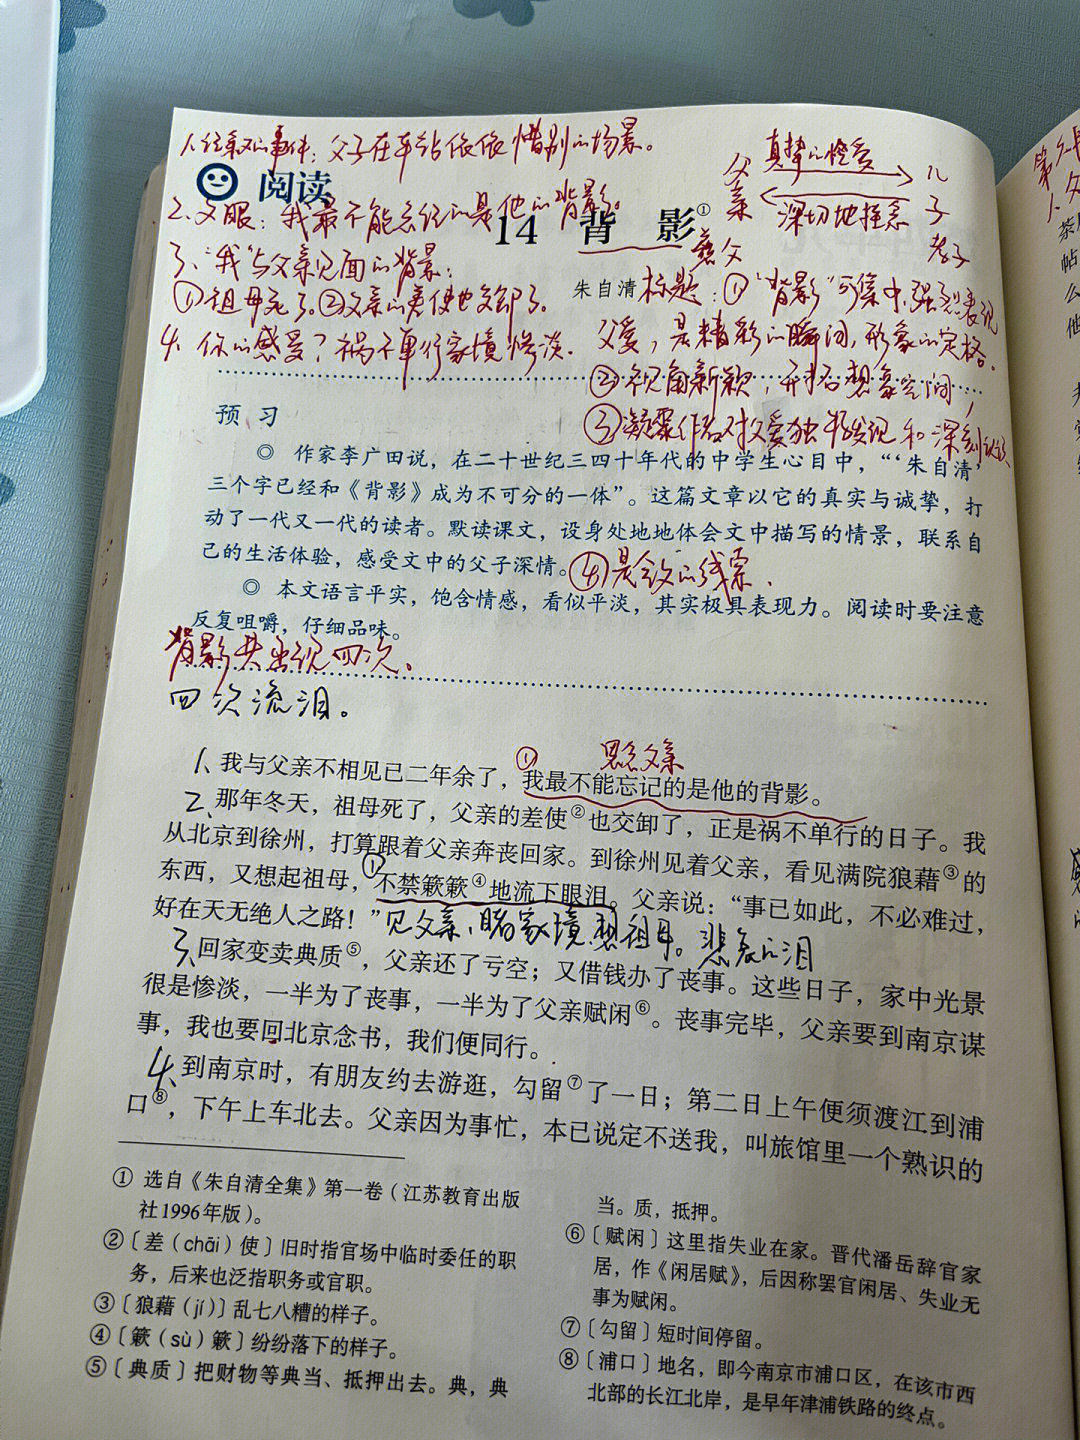 1、叙的事件：父子在车站依依惜别的场景。
阅读
2、文眼：我最不能忘记的是他的背影。
14 背 影①
3、“我”与父亲见面的背景：
①祖母死了。②父亲的差使也交卸了。
4、你的感受？祸不单行家境惨淡.
父亲
真挚的怜爱
深切地挂念
儿子
慈父
孝子
朱自清
标题：①“背影”可集中、强烈表现
父爱，是精彩的瞬间，形象的定格。
②视角新颖，开拓想象空间，
③凝聚作者对父爱独特发现和深刻
预 习
◎ 作家李广田说，在二十世纪三四十年代的中学生心目中，“‘朱自清’
三个字已经和《背影》成为不可分的一体”。这篇文章以它的真实与诚挚，打
动了一代又一代的读者。默读课文，设身处地地体会文中描写的情景，联系自
己的生活体验，感受文中的父子深情。
④是全文的线索.
◎ 本文语言平实，饱含情感，看似平淡，其实极具表现力。阅读时要注意
反复咀嚼，仔细品味。
背影共出现四次。
四次流泪。
思念父亲
1、我与父亲不相见已二年余了，①我最不能忘记的是他的背影。
2、那年冬天，祖母死了，父亲的差使②也交卸了，正是祸不单行的日子。我
从北京到徐州，打算跟着父亲奔丧回家。到徐州见着父亲，看见满院狼藉③的
东西，又想起祖母，①不禁簌簌④地流下眼泪。父亲说：“事已如此，不必难过，
好在天无绝人之路！”
见父亲、睹家境、想祖母。悲哀的泪
3、回家变卖典质⑤，父亲还了亏空；又借钱办了丧事。这些日子，家中光景
很是惨淡，一半为了丧事，一半为了父亲赋闲⑥。丧事完毕，父亲要到南京谋
事，我也要回北京念书，我们便同行。
4、到南京时，有朋友约去游逛，勾留⑦了一日；第二日上午便须渡江到浦
口⑧，下午上车北去。父亲因为事忙，本已说定不送我，叫旅馆里一个熟识的
① 选自《朱自清全集》第一卷（江苏教育出版
社1996年版）。
②〔差（chāi）使〕旧时指官场中临时委任的职
务，后来也泛指职务或官职。
③〔狼藉（jí）〕乱七八糟的样子。
④〔簌（sù）簌〕纷纷落下的样子。
⑤〔典质〕把财物等典当、抵押出去。典，典
当。质，抵押。
⑥〔赋闲〕这里指失业在家。晋代潘岳辞官家
居，作《闲居赋》，后因称罢官闲居、失业无
事为赋闲。
⑦〔勾留〕短时间停留。
⑧〔浦口〕地名，即今南京市浦口区，在该市西
北部的长江北岸，是早年津浦铁路的终点。